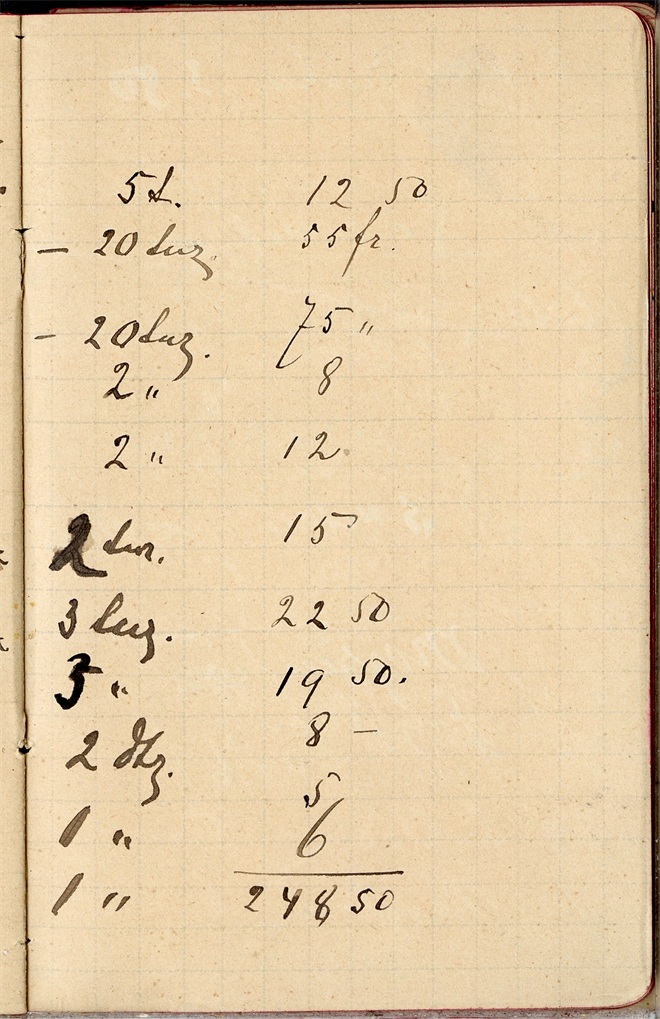 5 t. 12 50
– 20 duz. 55 fr.
– 20 duz. 75 "
2 " 8
2 " 12
2 15
3 duz. 22 50
3 " 19 50.
2 dtz. 8 –
1 " 5
1 " 6
248 50